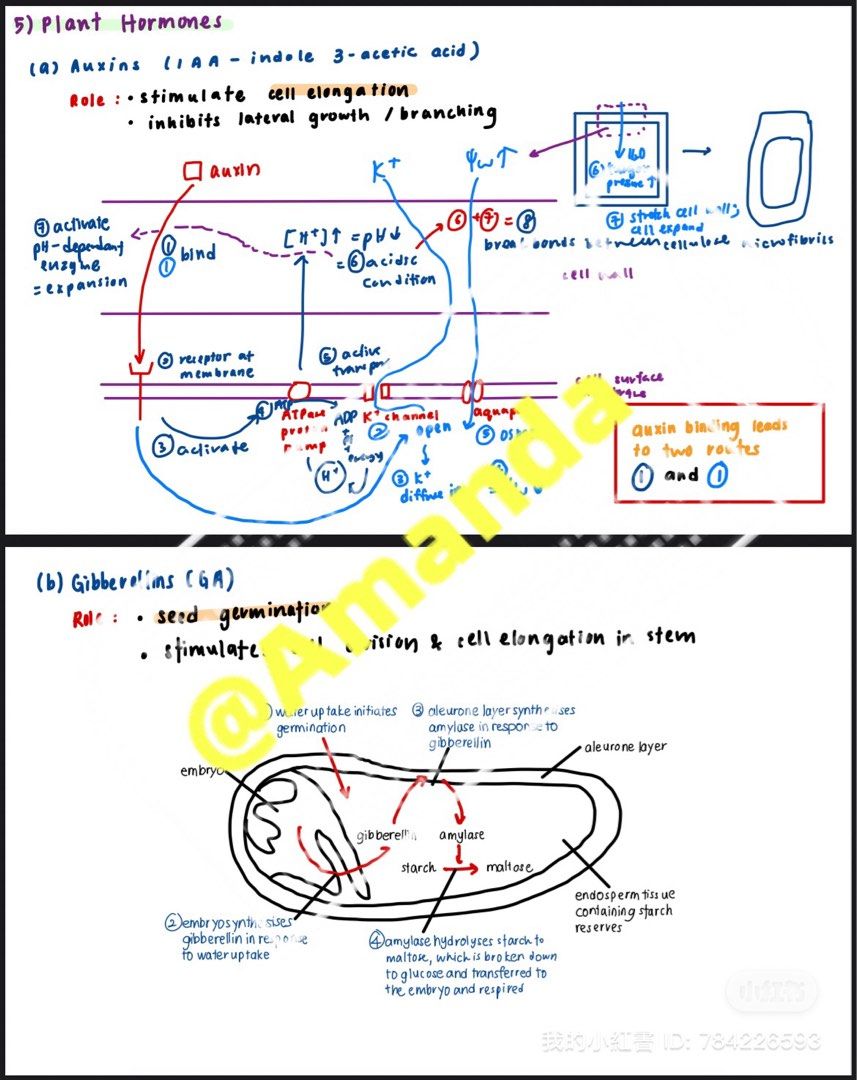 5) Plant Hormones
(a) Auxins (IAA - indole 3-acetic acid)
Role : • stimulate cell elongation
• inhibits lateral growth / branching
auxin
K⁺
Ψw ↑
H₂O
⑥
pressure ↑
⑦ stretch cell wall;
cell expand
⑥ + ⑦ = ⑧
break bonds between cellulose microfibrils
⑦ activate
pH-dependant
enzyme
= expansion
① bind
①
[H⁺]↑ = pH↓
= ⑥ acidic
condition
cell wall
② receptor at
membrane
⑤ active
surface
③ activate
④ ATP
ATPase
ADP
+
Pi
+
energy
H⁺
K⁺ channel
② open
③ K⁺
diffuse in
⑤
auxin binding leads
to two routes
① and ①
@Amanda
(b) Gibberellins (GA)
Role : • seed germination
• stimulates & cell elongation in stem
water uptake initiates
germination
③ aleurone layer synthesises
amylase in response to
gibberellin
aleurone layer
embryo
gibberellin
amylase
starch
maltose
endosperm tissue
containing starch
reserves
② embryo synthesises
gibberellin in response
to water uptake
④ amylase hydrolyses starch to
maltose, which is broken down
to glucose and transferred to
the embryo and respired
我的小紅書 ID: 784226593